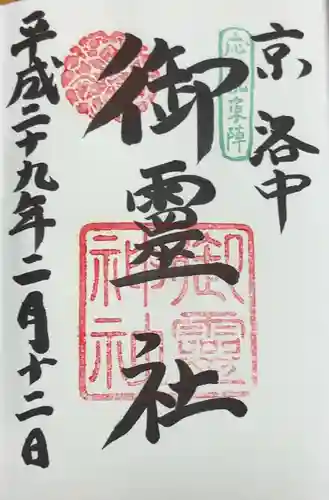 京 洛中
御霊社
御靈神社
平成二十九年二月十二日